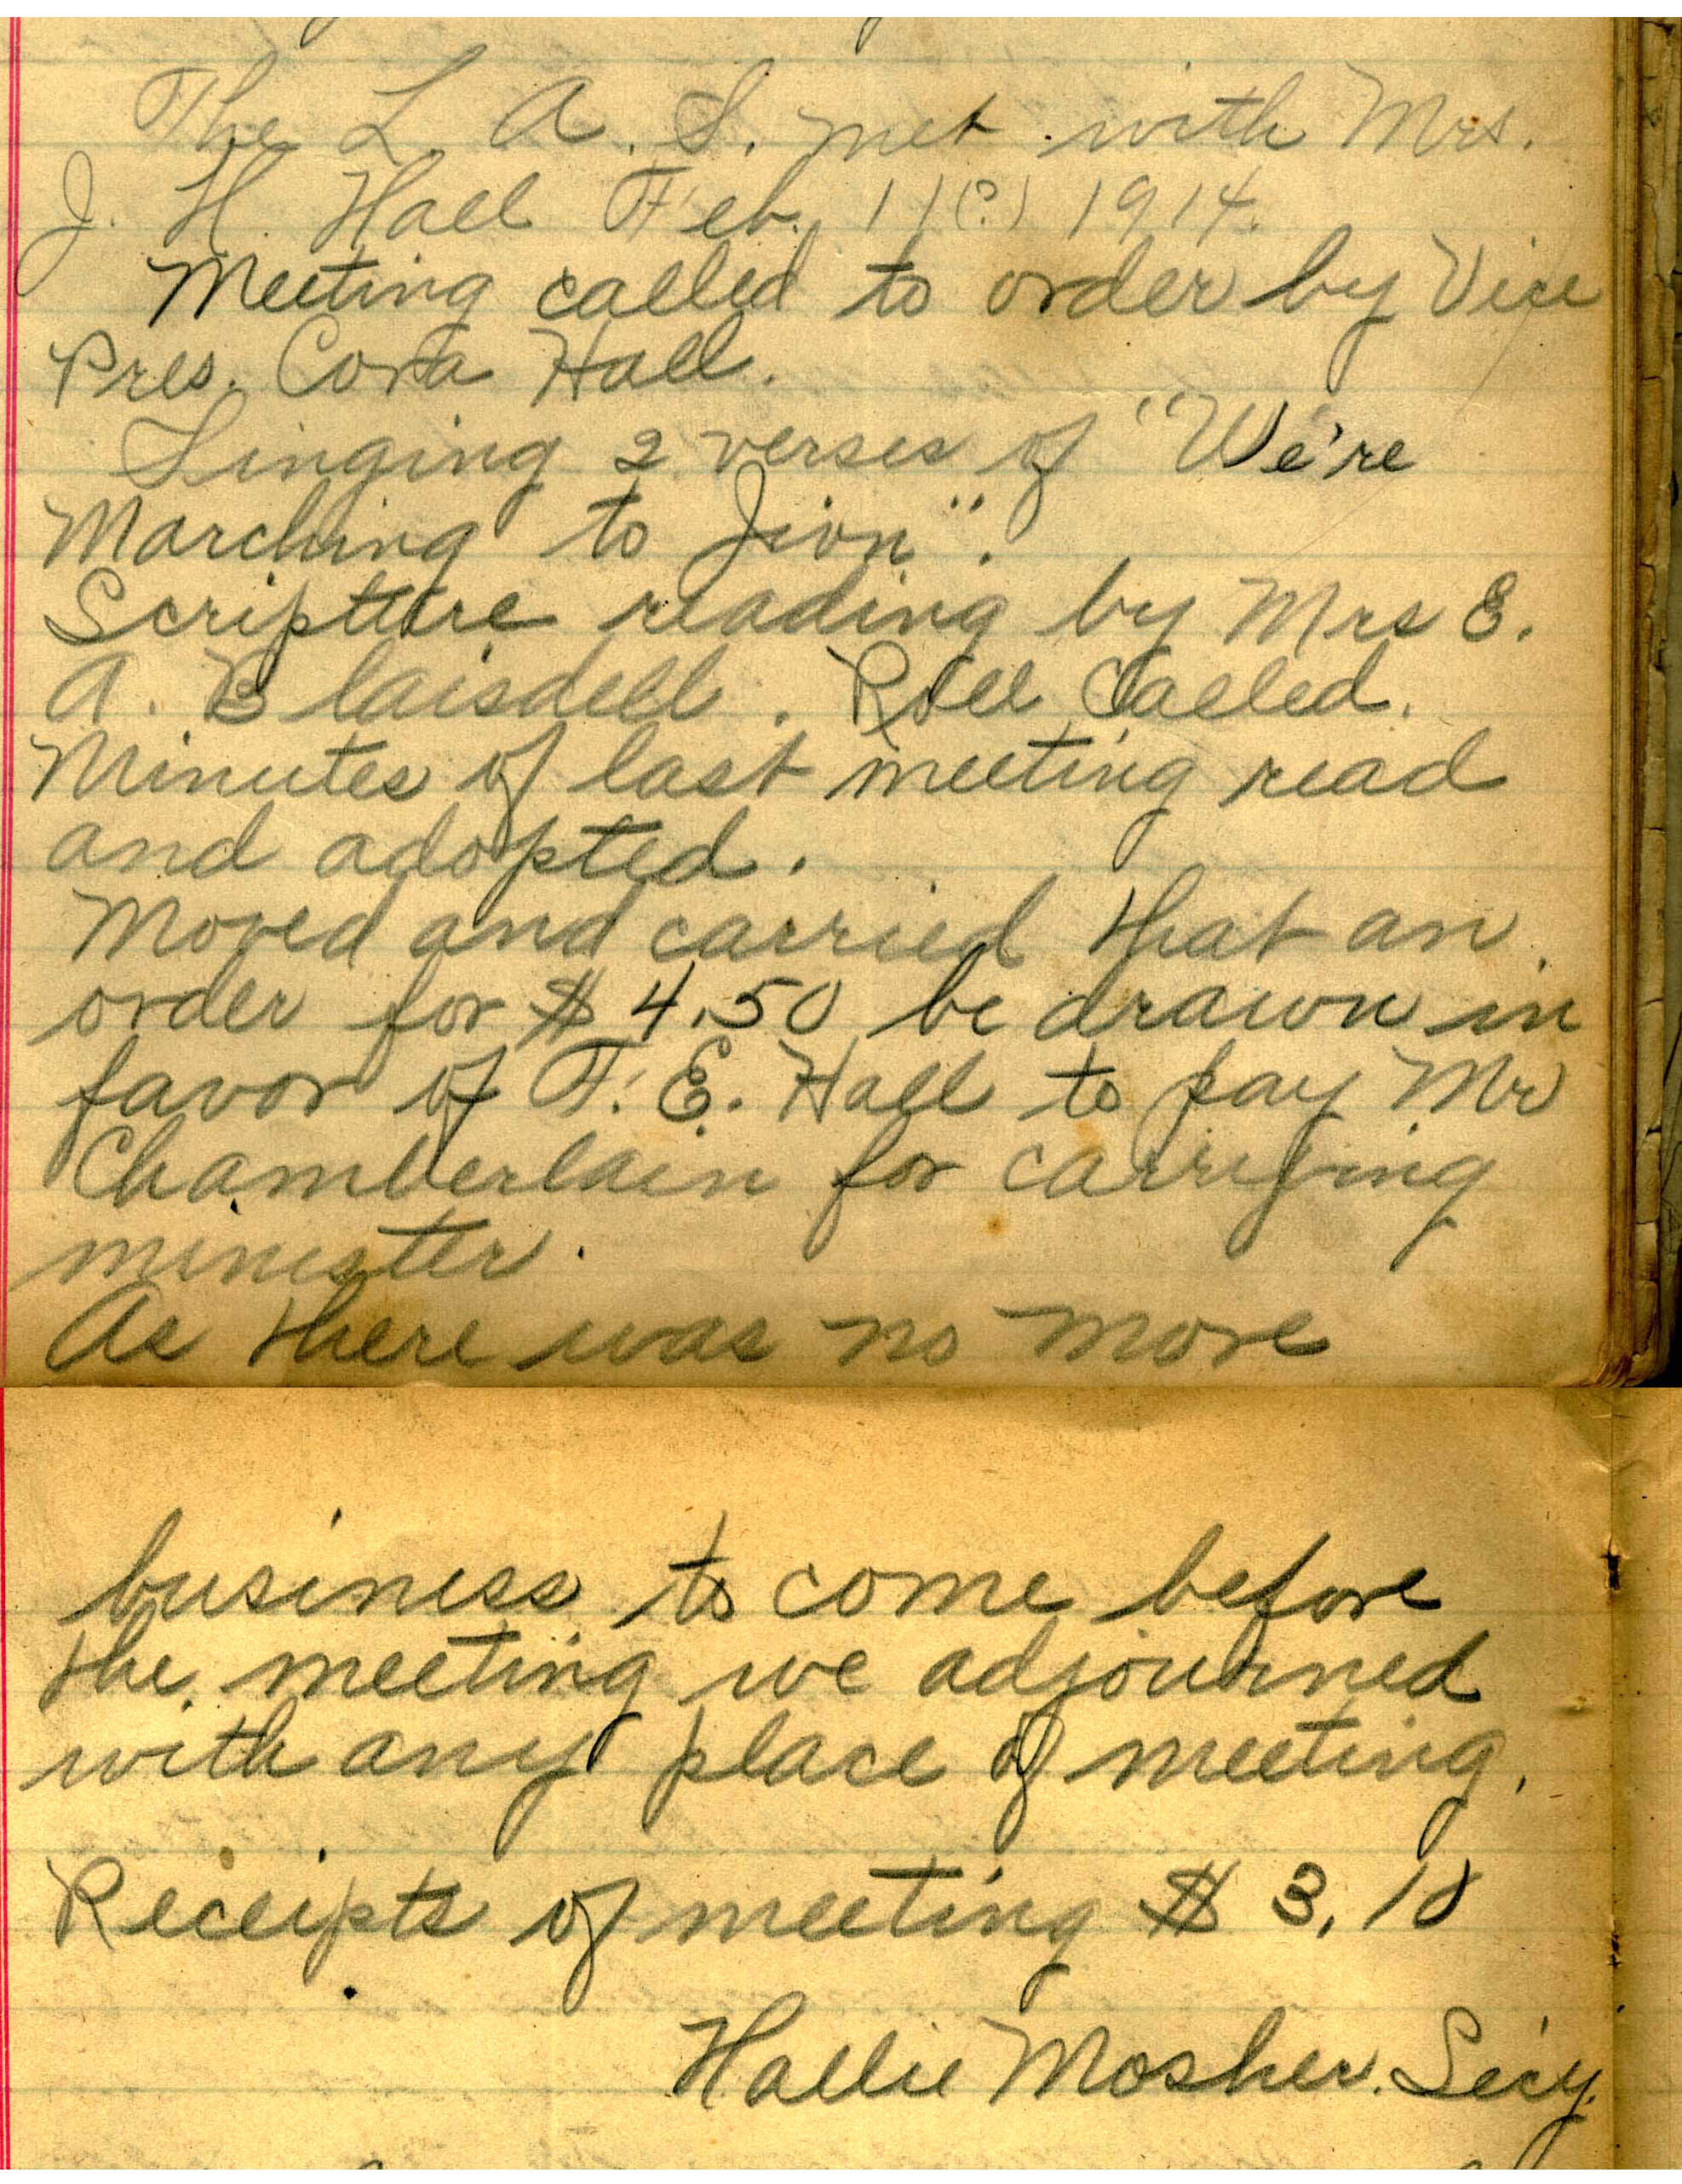 The L. A. S. met with Mrs.
J. H. Hall Feb. 11(?) 1914.
Meeting called to order by Vice
Pres. Cora Hall.
Singing 2 verses of "We're
Marching to Zion".
Scripture reading by Mrs E.
A. Blaisdell. Roll Called.
Minutes of last meeting read
and adopted.
Moved and carried that an
order for $4.50 be drawn in
favor of F. E. Hall to pay Mr
Chamberlain for carrying
minister.
As there was no more
business to come before
the meeting we adjourned
with any place of meeting.
Receipts of meeting $3.18
Hallie Mosher. Sec'y.